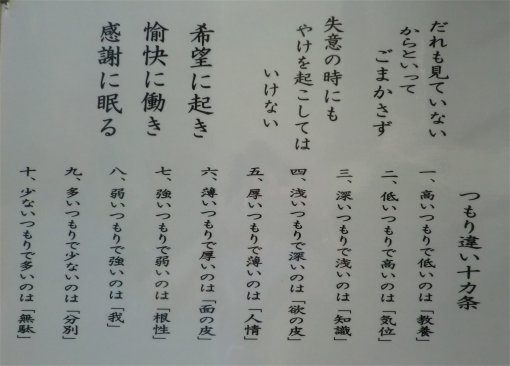 だれも見ていない
からといって
ごまかさず
失意の時にも
やけを起こしては
いけない
希望に起き
愉快に働き
感謝に眠る
つもり違い十カ条
一、高いつもりで低いのは「教養」
二、低いつもりで高いのは「気位」
三、深いつもりで浅いのは「知識」
四、浅いつもりで深いのは「欲の皮」
五、厚いつもりで薄いのは「人情」
六、薄いつもりで厚いのは「面の皮」
七、強いつもりで弱いのは「根性」
八、弱いつもりで強いのは「我」
九、多いつもりで少ないのは「分別」
十、少ないつもりで多いのは「無駄」